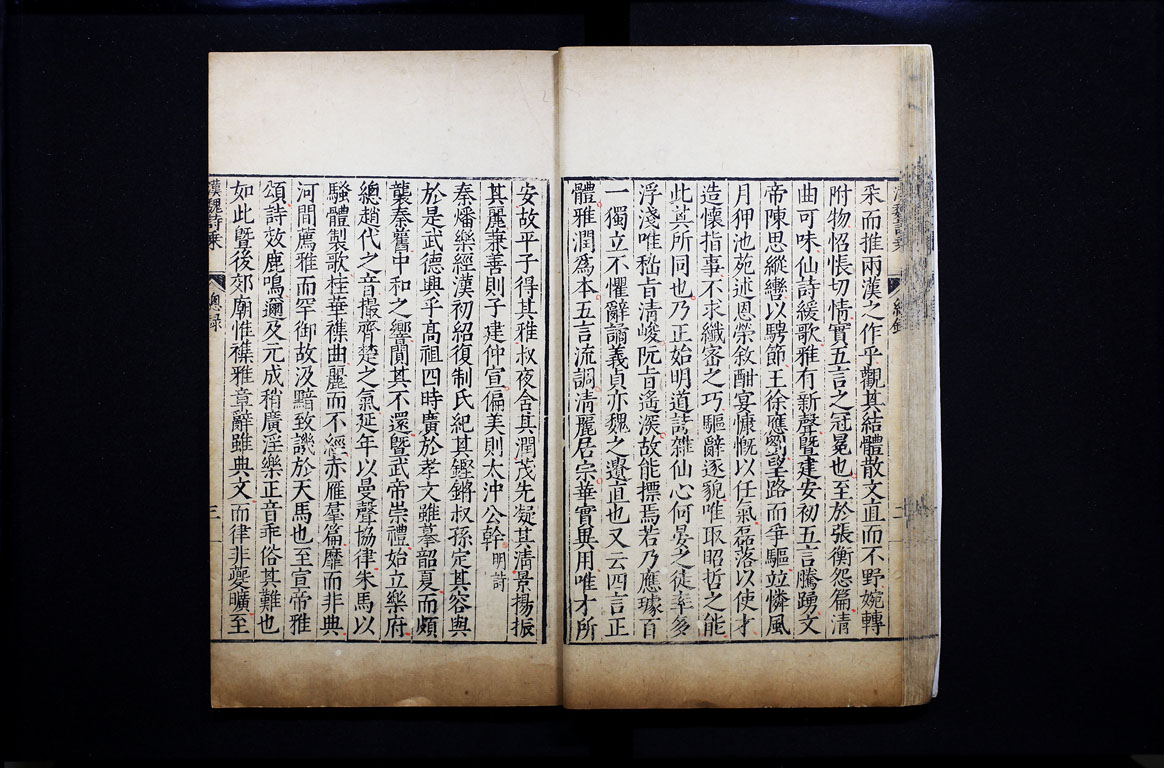 采而推兩漢之作乎觀其結體散文直而不野婉轉
附物怊悵切情實五言之冠冕也至於張衡怨篇清
曲可味仙詩緩歌雅有新聲曁建安初五言騰踴文
帝陳思縱轡以騁節王徐應劉望路而爭驅竝憐風
月狎池苑述恩榮敘酣宴慷慨以任氣磊落以使才
造懷指事不求纖密之巧驅辭逐貌唯取昭哲之能
此其所同也乃正始明道詩雜仙心何晏之徒率多
浮淺唯嵇旨淸峻阮旨遙深故能標焉若乃應璩百
一獨立不懼辭譎義貞亦魏之遺直也又云四言正
體雅潤爲本五言流調淸麗居宗華實異用唯才所
安故平子得其雅叔夜含其潤茂先凝其淸景揚振
其麗兼善則子建仲宣偏美則太沖公幹明詩
秦燔樂經漢初紹復制氏紀其鏗鏘叔孫定其容與
於是武德興乎高祖四時廣於孝文雖摹韶夏而頗
襲秦舊中和之響闃其不還曁武帝崇禮始立樂府
總趙代之音撮齊楚之氣延年以曼聲協律朱馬以
騷體製歌桂華襍曲麗而不經赤雁羣篇靡而非典
河間薦雅而罕御故汲黯致譏於天馬也至宣帝雅
頌詩效鹿鳴邇及元成稍廣淫樂正音乖俗其難也
如此曁後郊廟惟襍雅章辭雖典文而律非夔曠至
漢魏詩乘 總録 三